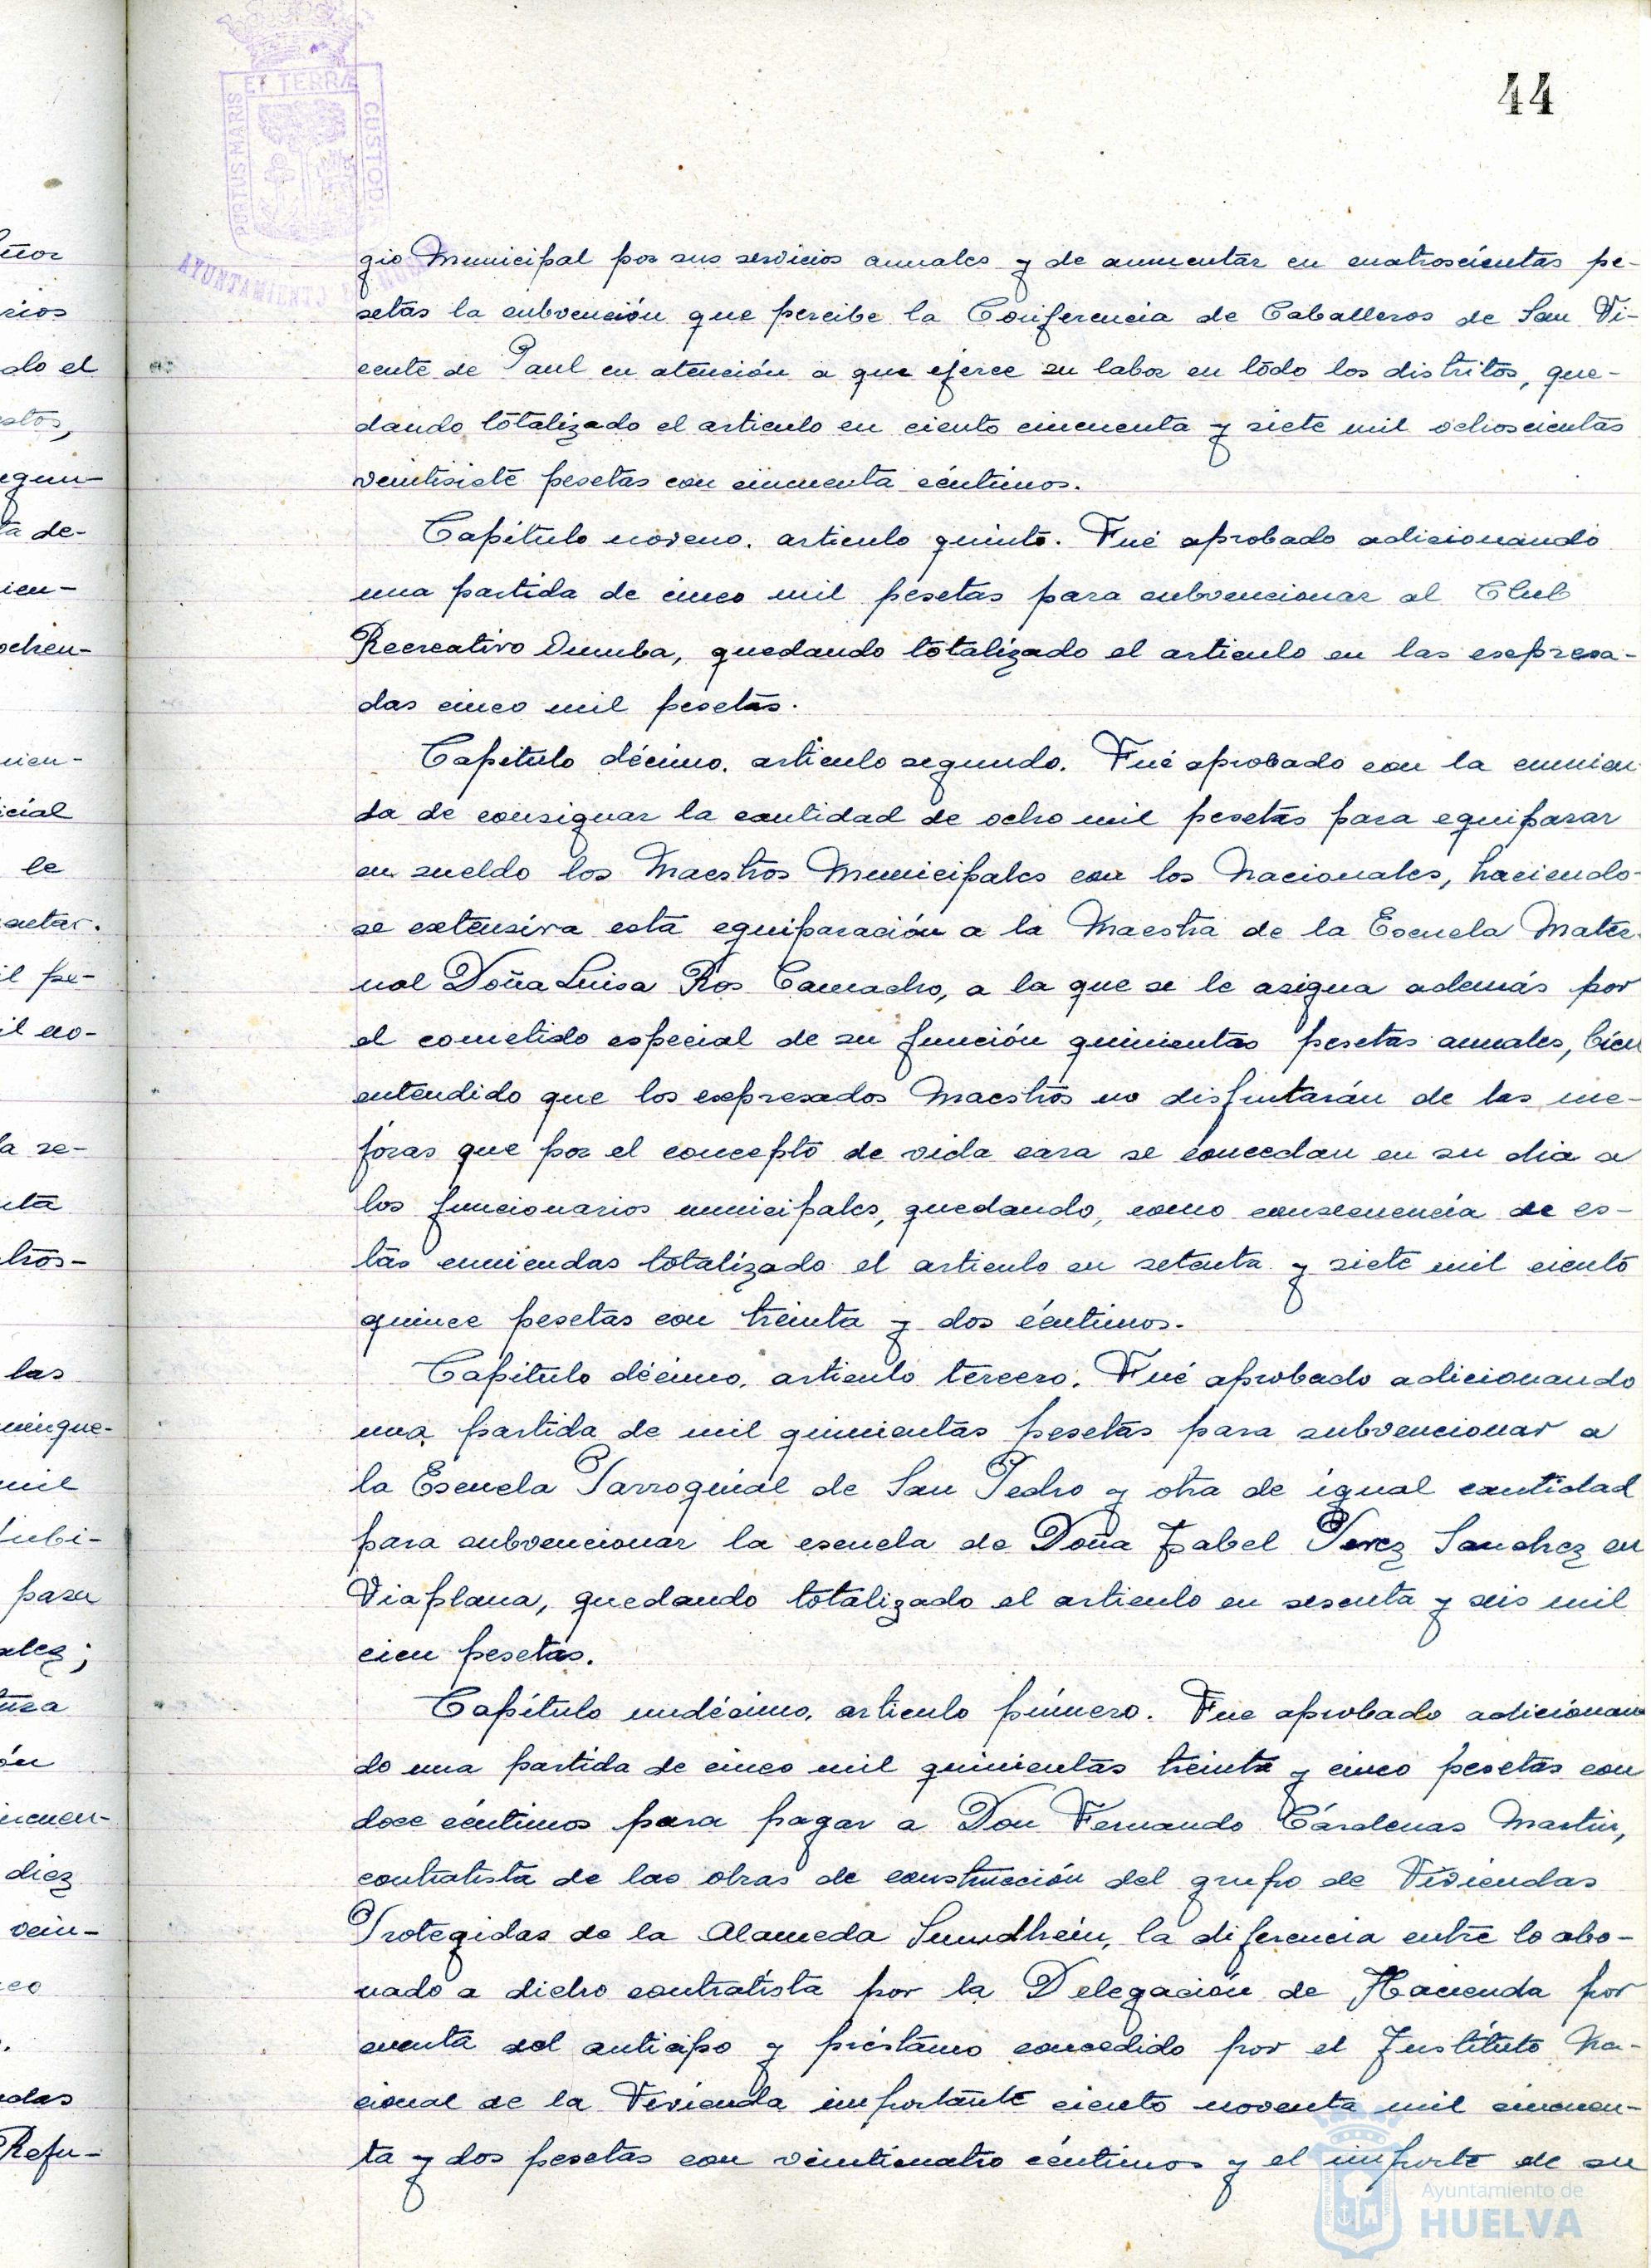 44
PORTUS MARIS
ET TERRÆ
CUSTODIA
AYUNTAMIENTO
gio Municipal por sus servicios anuales y de aumentar en cuatroscientas pe-
setas la subvención que percibe la Conferencia de Caballeros de San Vi-
cente de Paul en atención a que ejerce su labor en todo los distritos, que-
dando totalizado el articulo en ciento cincuenta y siete mil ochoscientas
veintisiete pesetas con cincuenta céntimos.
Capítulo noveno. articulo quinto. Fué aprobado adicionando
una partida de cinco mil pesetas para subvencionar al Club
Recreativo Onuba, quedando totalizado el articulo en las expresa-
das cinco mil pesetas.
Capitulo décimo. articulo segundo. Fué aprobado con la enmien-
da de consignar la cantidad de ocho mil pesetas para equiparar
en sueldo los Maestros Municipales con los Nacionales, haciendo-
se extensiva esta equiparación a la Maestra de la Escuela Mater-
nal Doña Luisa Ros Camacho, a la que se le asigna además por
el cometido especial de su función quinientas pesetas anuales, bien
entendido que los expresados Maestros no disfrutarán de las me-
joras que por el concepto de vida cara se concedan en su dia a
los funcionarios municipales, quedando, como consecuencia de es-
tas enmiendas totalizado el articulo en setenta y siete mil ciento
quince pesetas con treinta y dos céntimos.
Capítulo décimo. articulo tercero. Fué aprobado adicionando
una partida de mil quinientas pesetas para subvencionar a
la Escuela Parroquial de San Pedro y otra de igual cantidad
para subvencionar la escuela de Doña Isabel Perez Sanchez en
Viaplana, quedando totalizado el articulo en sesenta y seis mil
cien pesetas.
Capítulo undécimo. articulo primero. Fue aprobado adicionan
do una partida de cinco mil quinientas treinta y cinco pesetas con
doce céntimos para pagar a Don Fernando Cárdenas Martin,
contratista de las obras de construcción del grupo de Viviendas
Protegidas de la Alameda Sundhein, la diferencia entre lo abo-
nado a dicho contratista por la Delegación de Hacienda por
cuenta del anticipo y préstamo concedido por el Instituto Na-
cional de la Vivienda importante ciento noventa mil cincuen-
ta y dos pesetas con veinticuatro céntimos y el importe de su
Ayuntamiento de
HUELVA